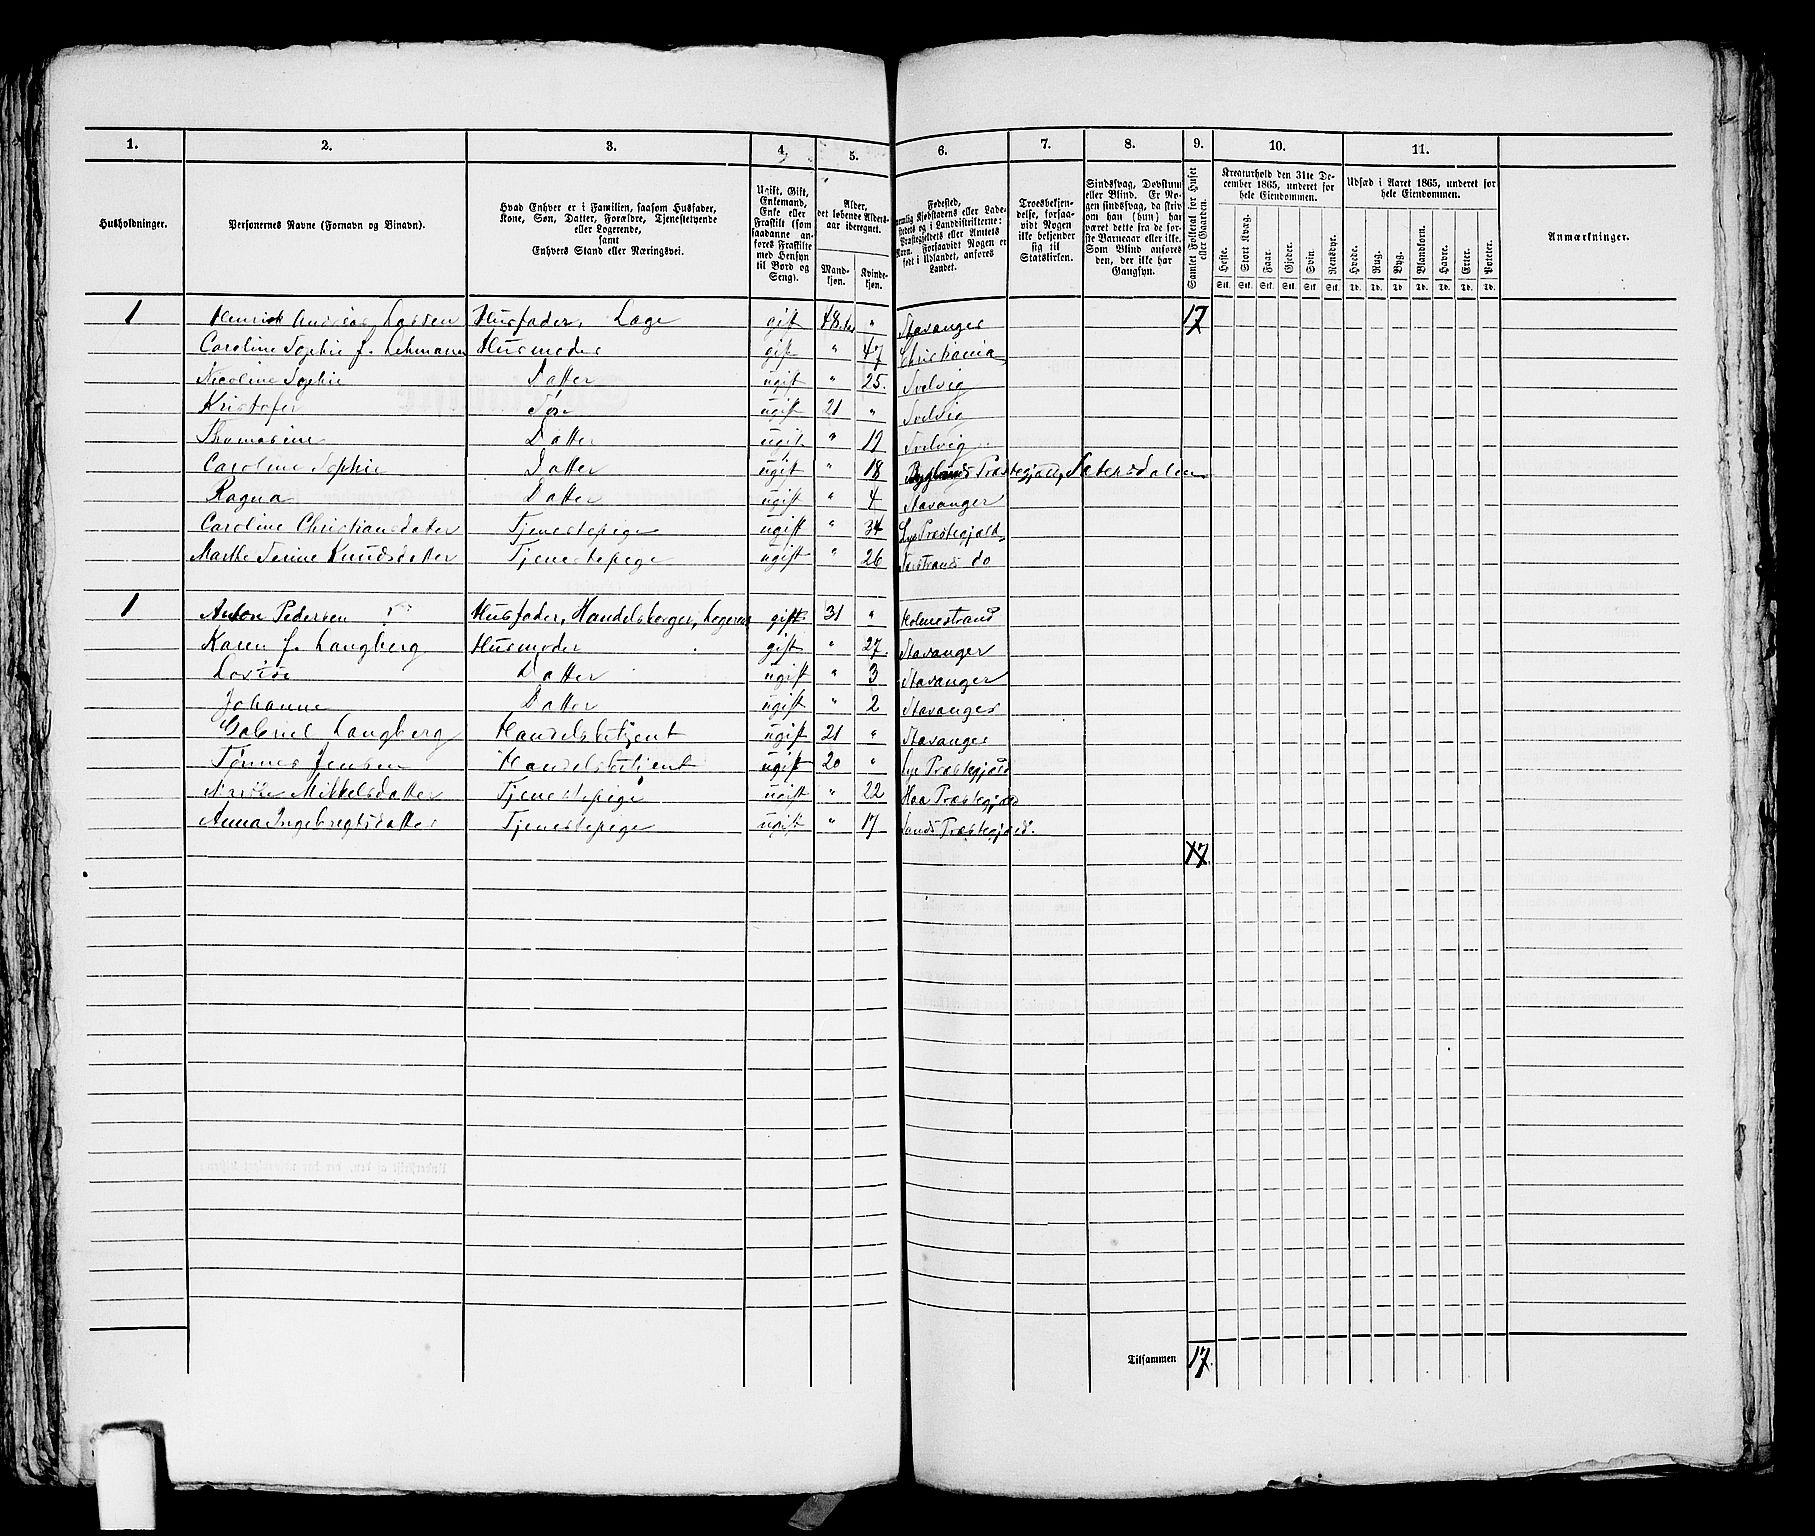 1. 2. 3. 4. 5. 6. 7. 8. 9. 10. 11.
Husholdninger.
Personernes Navne (Fornavn og Binavn).
Hvad Enhver er i Familien, saasom Husfader,
Kone, Søn, Datter, Forældre, Tjenestetyende
eller Logerende,
samt
Enhvers Stand eller Næringsvei.
Ugift, Gift,
Enkemand,
Enke eller
Fraskilt (som
saadanne an-
føres Fraskilte
med Hensyn
til Bord og
Seng).
Alder,
det løbende Alders-
aar iberegnet.
Mand-
kjøn.
Kvinde-
kjøn.
Fødested,
nemlig Kjøbstadens eller Lade-
stedets og i Landdistrikterne:
Præstegjeldets eller Amtets
Navn. Forsaavidt Nogen er
født i Udlandet, anføres
Landet.
Troesbekjen-
delse, forsaa-
vidt Nogen
ikke bekjender
sig til
Statskirken.
Sindssvag, Døvstum
eller Blind. Er No-
gen sindssvag, da skriv
om han (hun) har
været dette fra de før-
ste Barneaar eller ikke.
Som Blind anføres
den, der ikke har
Gangsyn.
Samlet Folketal for Huset
eller Gaarden.
Kreaturhold den 31te De-
cember 1865, underet for
hele Eiendommen.
Heste. Stort Kvæg. Faar. Gjeder. Svin. Rensdyr.
Stk. Stk. Stk. Stk. Stk. Stk.
Udsæd i Aaret 1865, underet for
hele Eiendommen.
Hvede. Rug. Byg. Blandkorn. Havre. Erter. Poteter.
Td. Td. Td. Td. Td. Td. Td.
Anmærkninger.
1 Henrik Andreas Larsen Husfader, Læge gift 48 " Stavanger 17
Caroline Sophie f. Lehmann Husmoder gift " 47 Christiania
Nicoline Sophie Datter ugift " 25. Svelvig
Kristofer Søn ugift 21 " Svelvig
Thomasine Datter ugift " 19 Svelvig
Caroline Sophie Datter ugift " 18 Byglands Præstegjeld, Sætersdalen
Ragna Datter ugift " 4 Stavanger
Caroline Christiansdatter Tjenestepige ugift " 34 Lye Præstegjæld
Marthe Serine Knudsdatter Tjenestepige ugift " 26 do
1 Anton Pedersen Husfader, Handelsborger, gift 31 " Holmestrand
Karen f. Langberg Husmoder gift " 27 Stavanger
Datter ugift " 3 Stavanger
Johanne Datter ugift " 2 Stavanger
Gabriel Langberg Handelsbetjent ugift 21 " Stavanger
Tønnes Jensen Handelsbetjent ugift 20 " Lye Præstegjæld
Mikkelsdatter Tjenestepige ugift " 22 Haa Præstegjæld
Anna Ingebregtsdatter Tjenestepige ugift " 17 Sands Præstegjæld.
17.
Tilsammen 17.